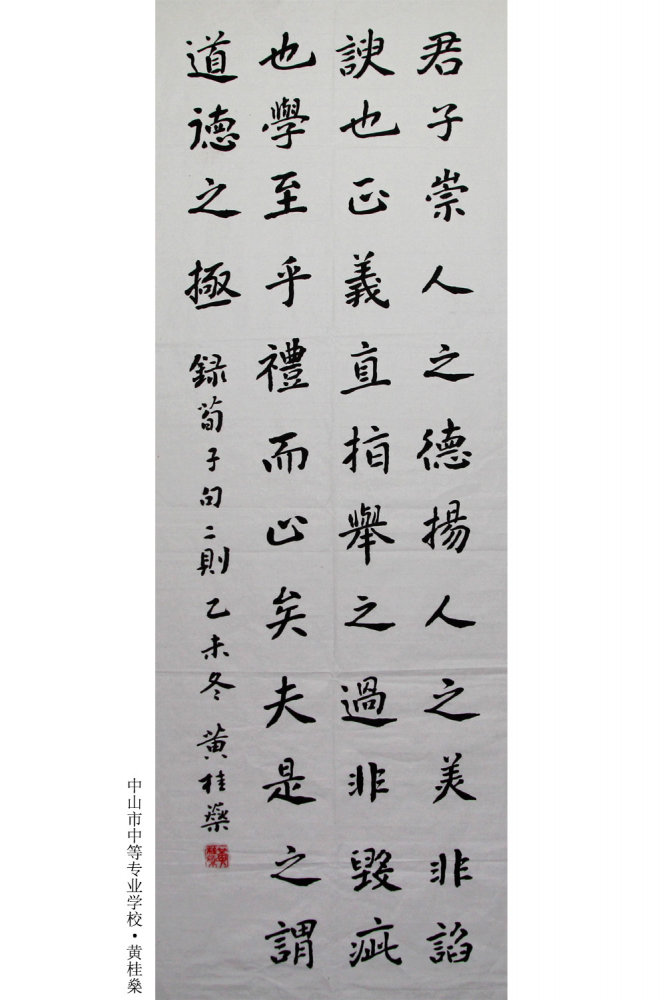 君子崇人之德揚人之美非諂
諛也正義直指舉之過非毀疵
也學至乎禮而止矣夫是之謂
道德之極 録荀子句二則 乙未冬 黄桂燊
中山市中等专业学校·黄桂燊